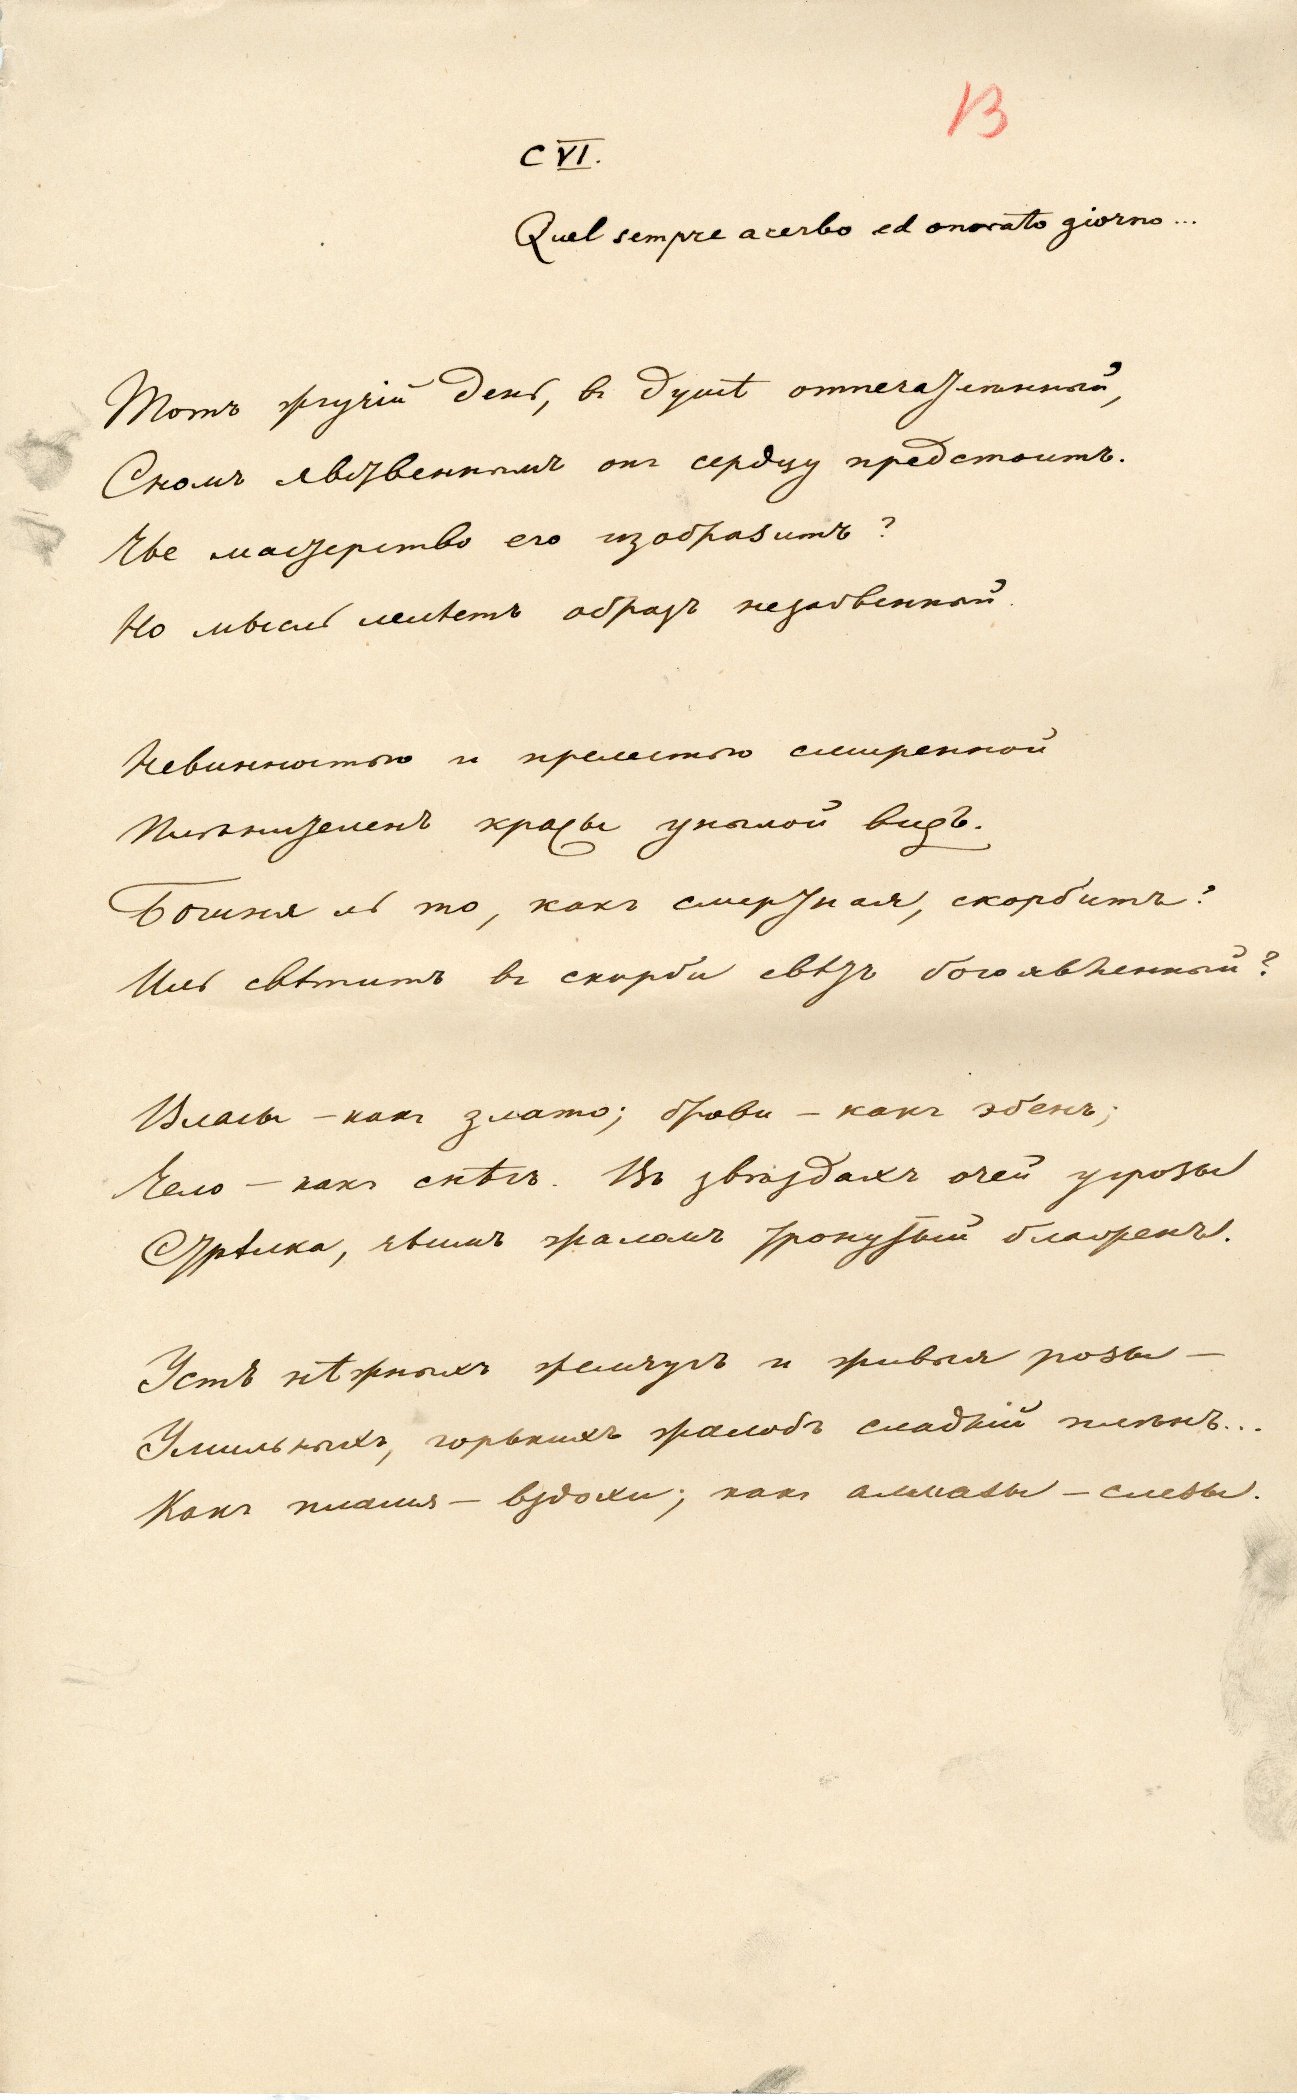 13
CVI.
Quel sempre acerbo ed onorato giorno...
Тотъ жгучій день, въ душѣ отпечатлѣнный,
Сномъ явственнымъ онъ сердцу предстоитъ.
Чье мастерство его изобразитъ?
Но мысль лелѣетъ образъ незабвенный.
Невинностью и прелестью смиренной
Плѣнителенъ красы унылой видъ.
Богиня ль то, какъ смертная, скорбитъ?
Иль свѣтитъ въ скорби свѣтъ богоявленный?
Власы – какъ злато; брови – какъ эбенъ;
Чело – какъ снѣгъ. Въ звѣздахъ очей угрозы
Стрѣлка, чьимъ жаломъ тронутый блаженъ.
Устъ нѣжныхъ жемчугъ и живыя розы –
Умильныхъ, горькихъ жалобъ сладкій плѣнъ...
Какъ пламя – вздохи; какъ алмазы – слезы.